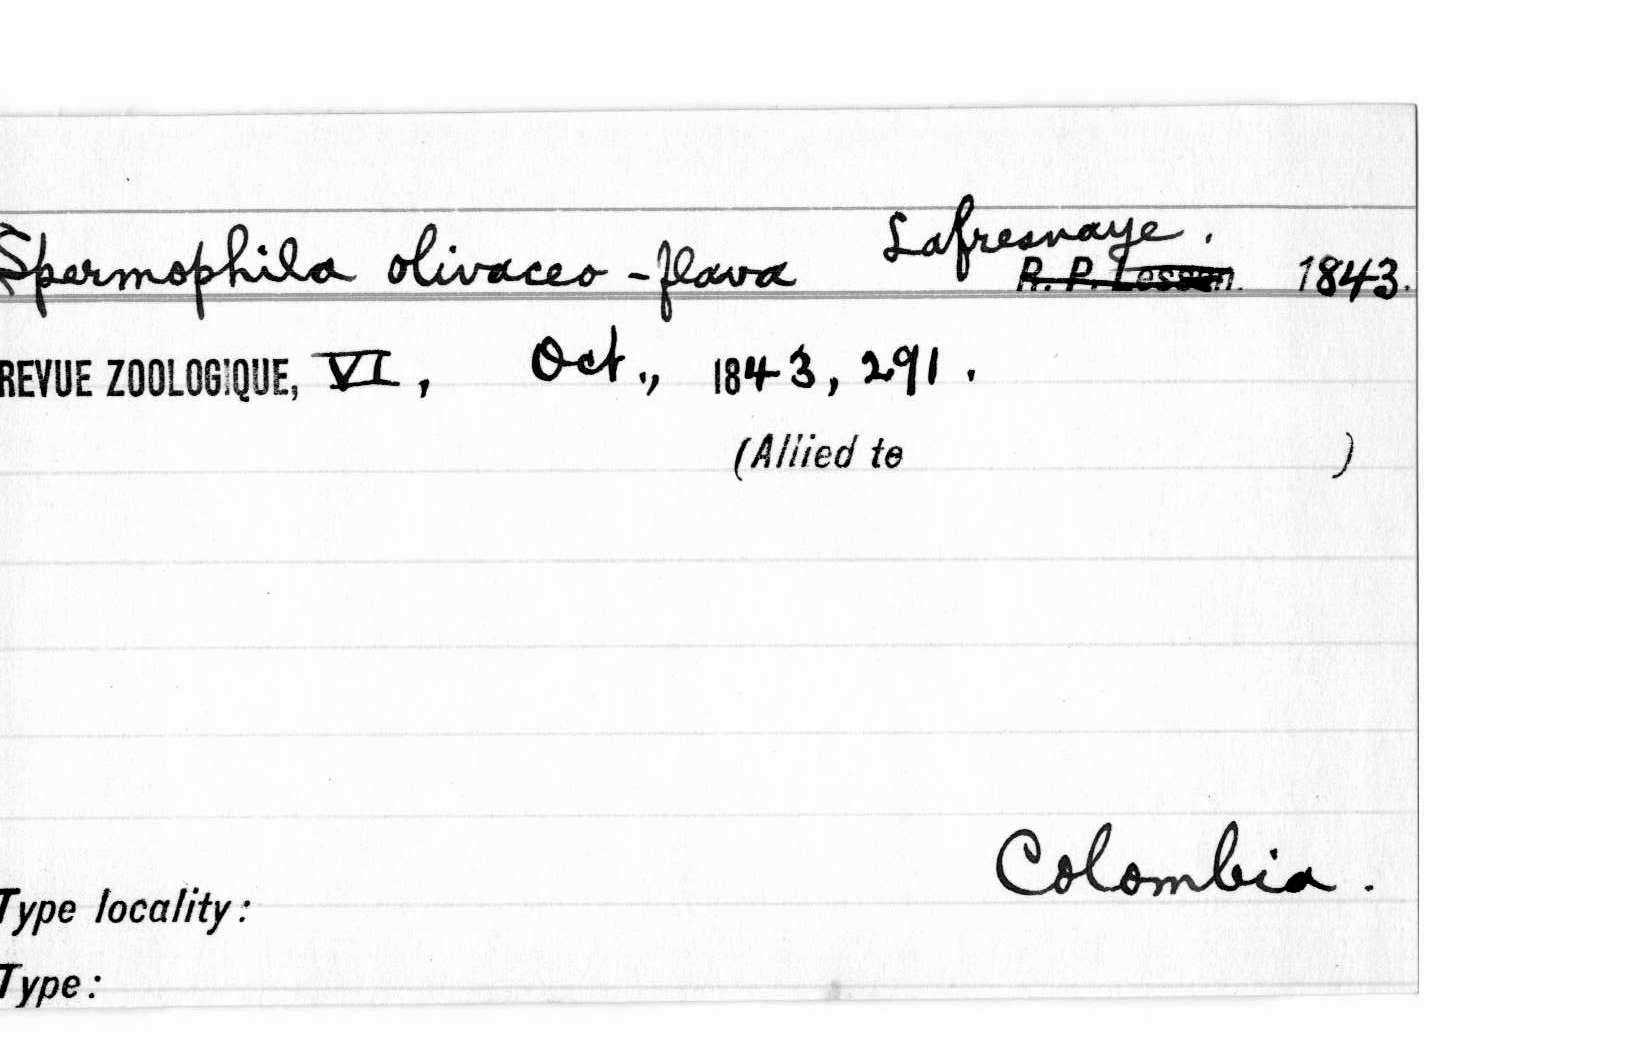 Spermophila olivaceo-flava Lafresnaye.
R. P. Lesson. 1843.
REVUE ZOOLOGIQUE, VI, Oct., 1843, 291.
(Allied to )
Colombia.
Type locality:
Type: